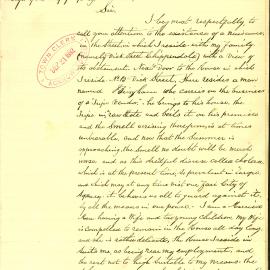 Sir,
I beg most respectfully to
call your attention to the existence of a nuisance,
in the Street in which I reside with my family
(namely Dick Street Chippendale) viz a
of the settlement next door to the House in which
I reside No 13 Dick Street, there resides a man
named Bingham who carries on the business
of a Tripe Vendor. he brings to his house, the
Tripe in raw state and boils it on his premises
and the smell arising therefrom is at times
unbearable, and now that the Summer is
approaching, the smell no doubt will be much
worse and as this dreadful disease called cholera
which is at the present time, is prevalent in
and which may at any time visit our fair City of
Sydney. it behoves us all to guard against it,
by all the means in our power. I am a Married
Man having a Wife and two young children, my Wife
is compelled to remain in the House all day long,
and she is rather delicate, the House I reside in
suits me, as being near my employment, and
the rent not to high suitable to my means. the
TOWN CLERK'S